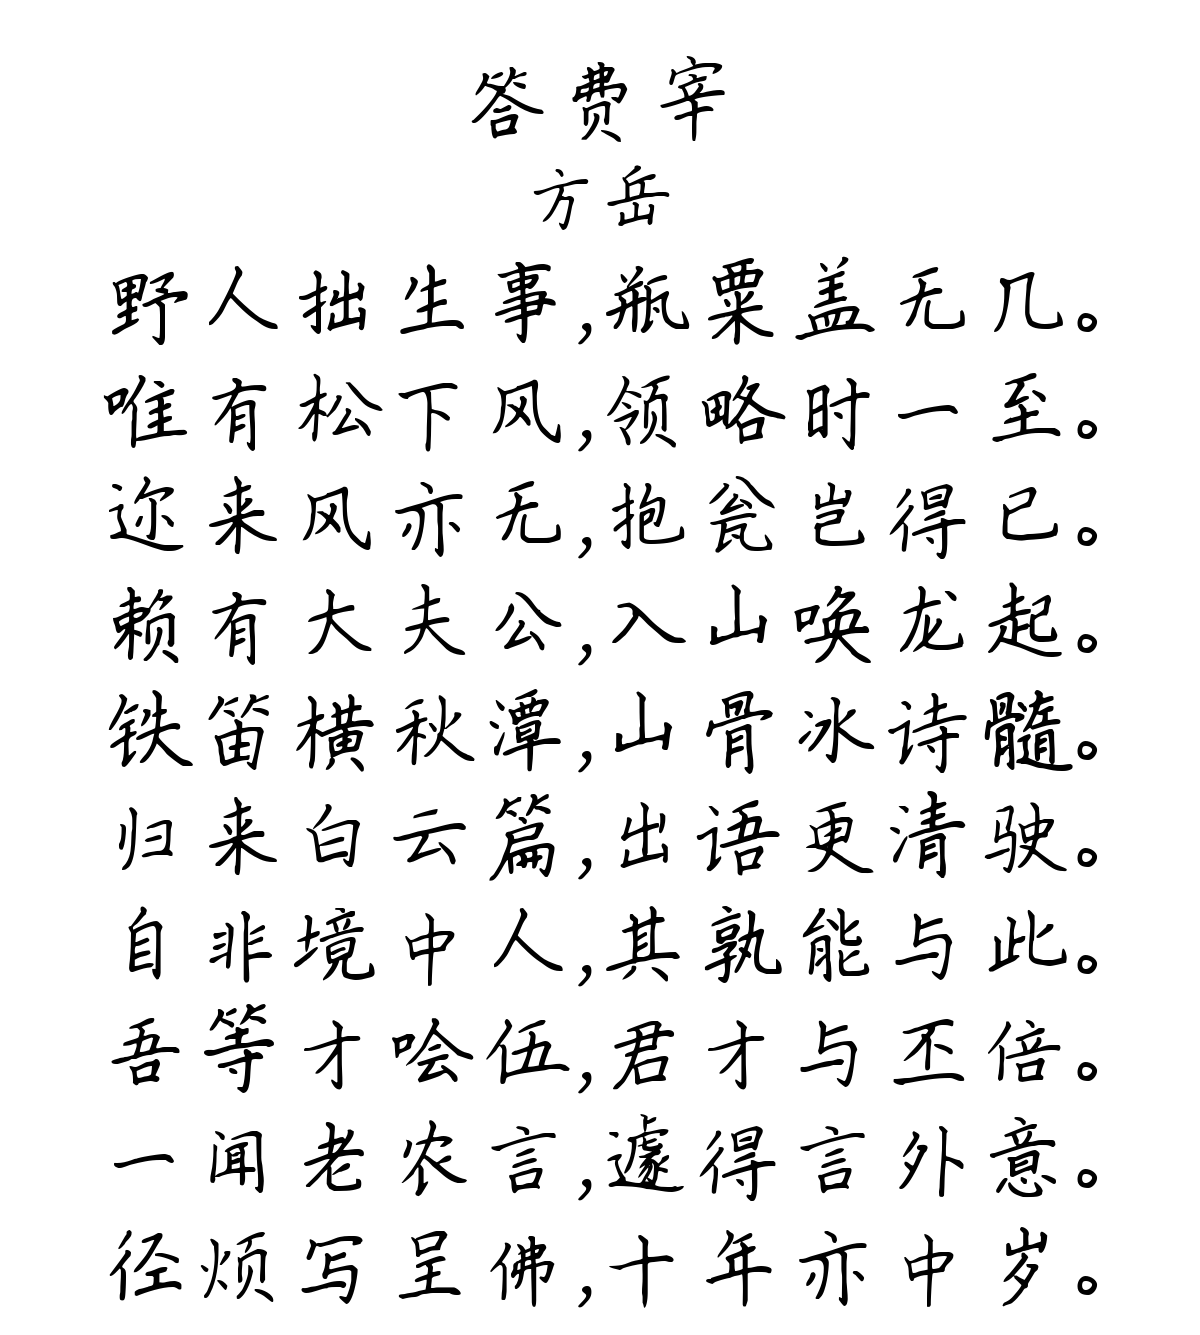 答费宰
方岳
野人拙生事,瓶粟盖无几。
唯有松下风,领略时一至。
迩来风亦无,抱瓮岂得已。
赖有大夫公,入山唤龙起。
铁笛横秋潭,山骨冰诗髓。
归来白云篇,出语更清驶。
自非境中人,其孰能与此。
吾等才哙伍,君才与丕倍。
一闻老农言,遽得言外意。
径烦写呈佛,十年亦中岁。